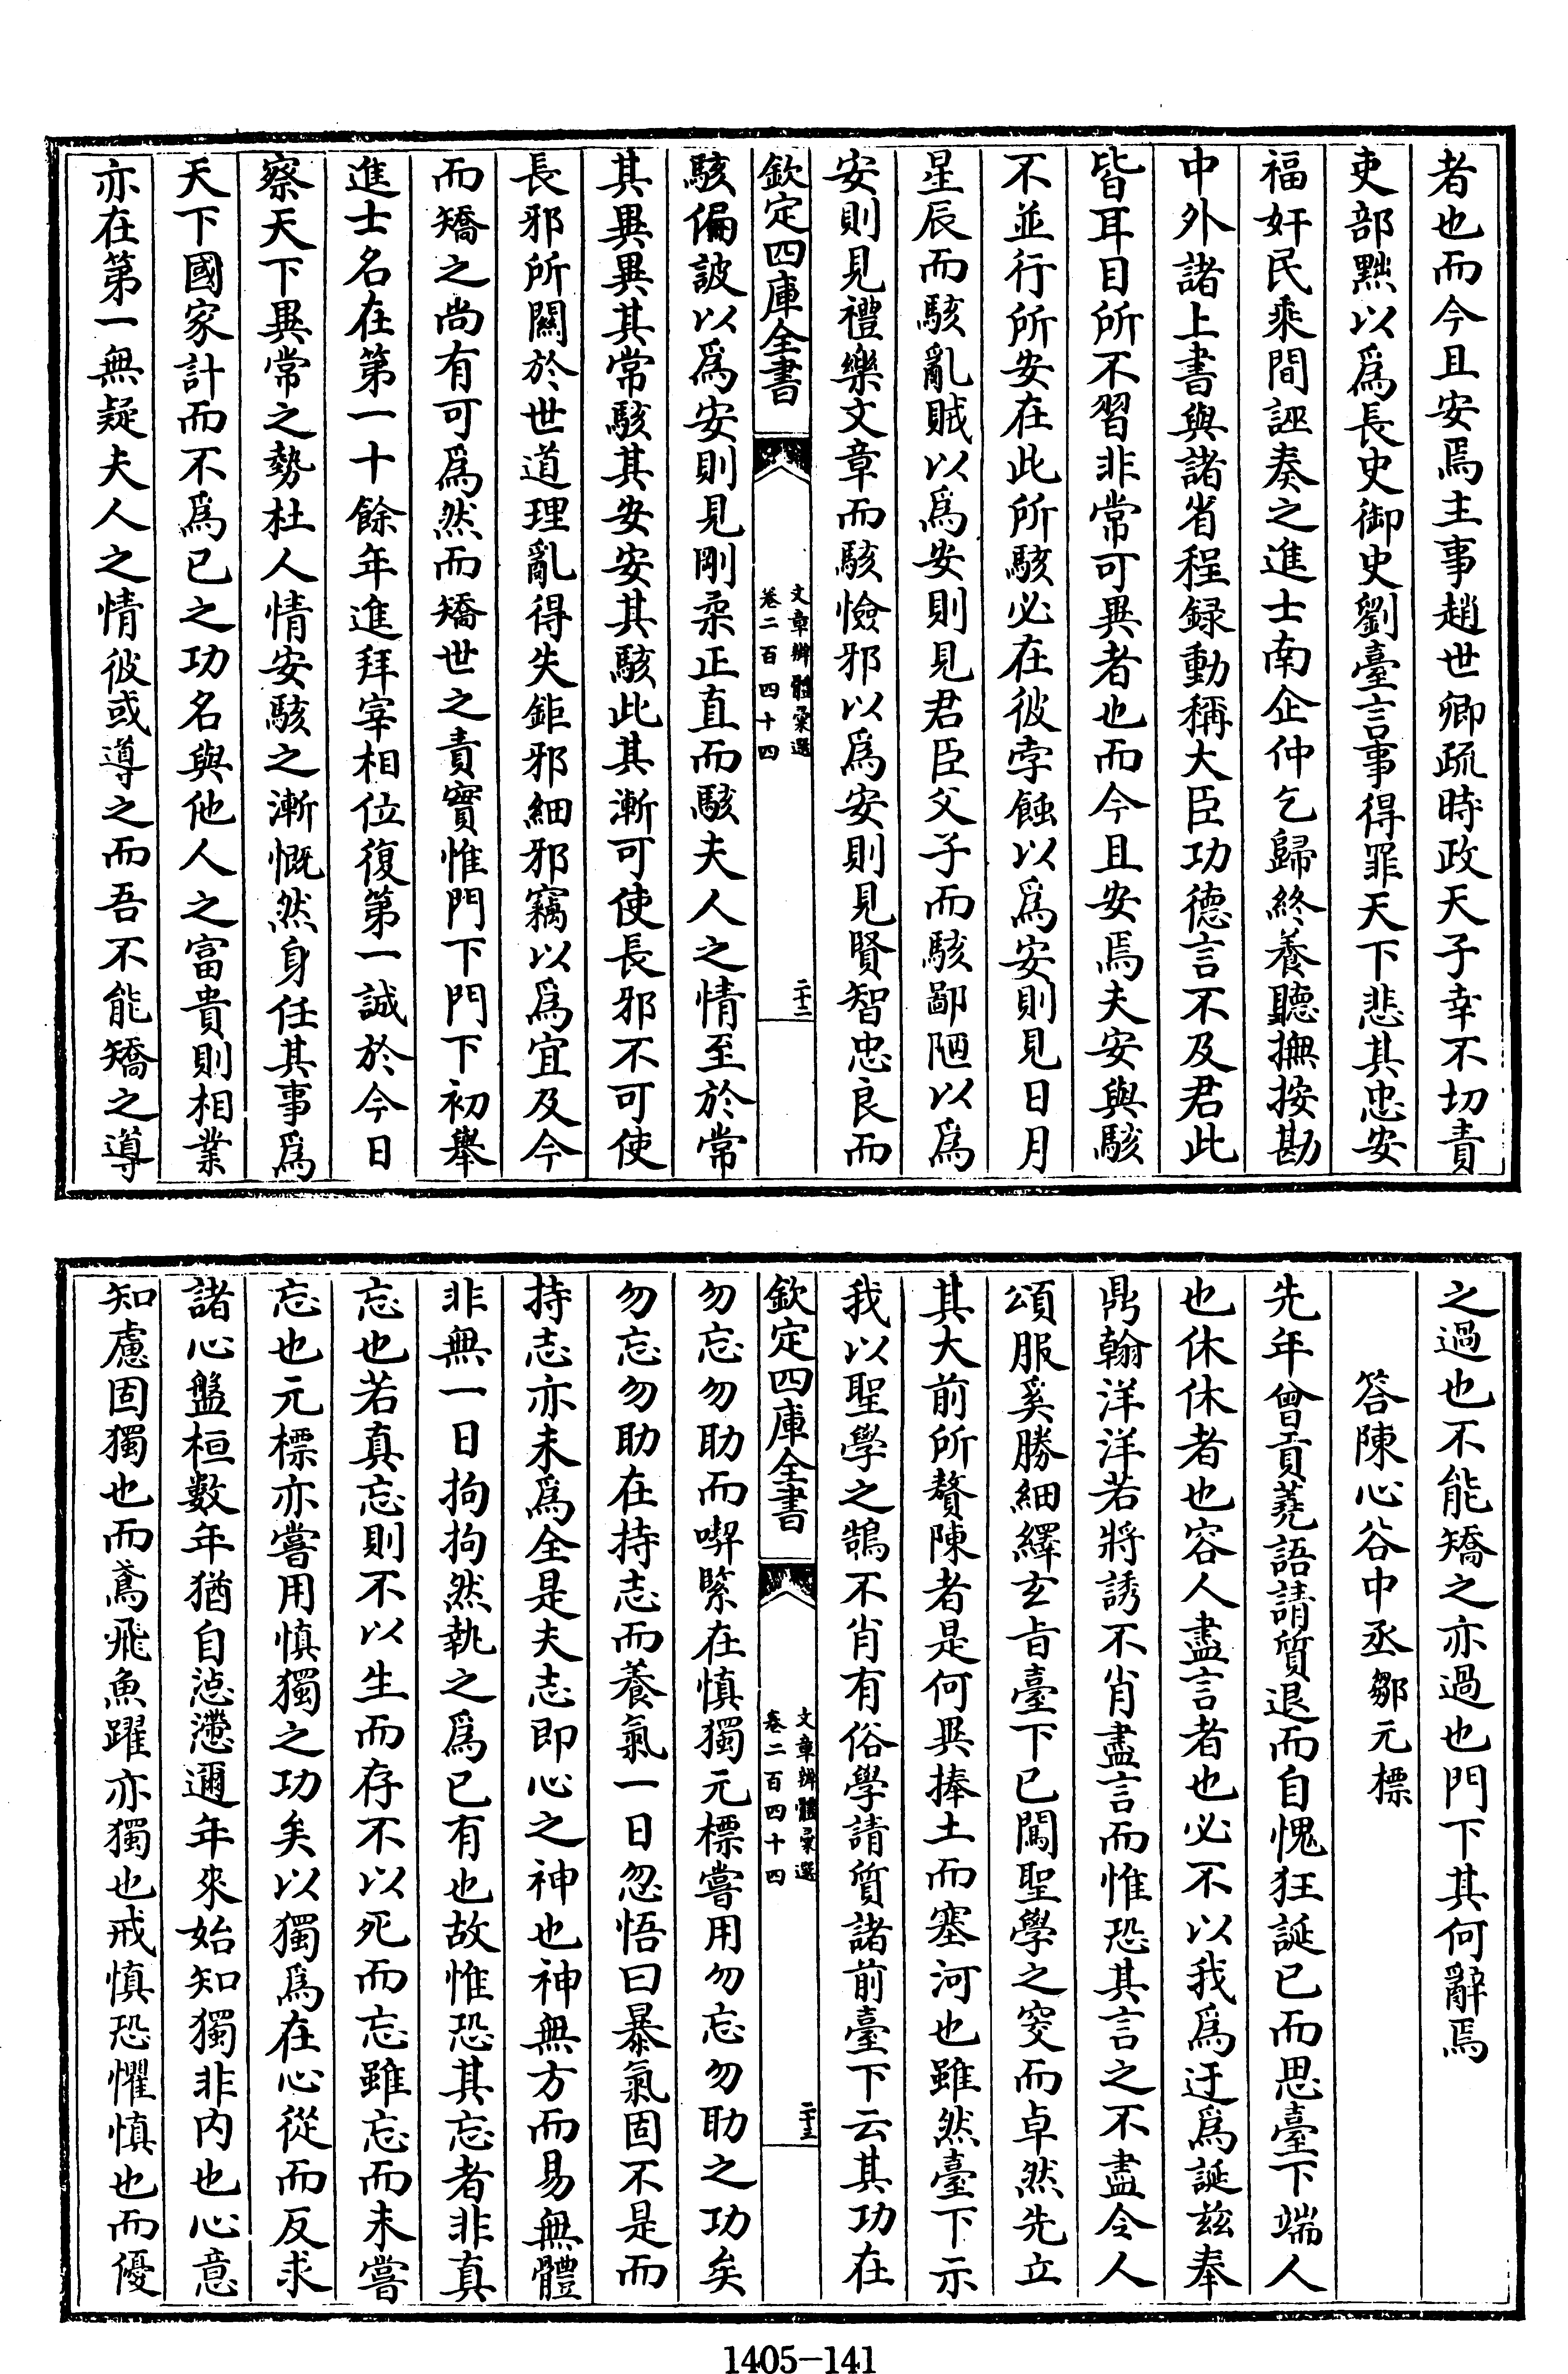 者也而今且安焉主事趙世卿疏時政天子幸不切責
吏部黜以爲長史御史劉臺言事得罪天下悲其忠安
福奸民乘間誣奏之進士南企仲乞歸終養聽撫按勘
中外諸上書與諸省程録動稱大臣功德言不及君此
皆耳目所不習非常可異者也而今且安焉夫安與駭
不並行所安在此所駭必在彼孛蝕以爲安則見日月
星辰而駭亂賊以爲安則見君臣父子而駭鄙陋以爲
安則見禮樂文章而駭憸邪以爲安則見賢智忠良而
欽定四庫全書
文章辨體彙選
卷二百四十四
二十二
駭偏詖以爲安則見剛柔正直而駭夫人之情至於常
其異異其常駭其安安其駭此其漸可使長邪不可使
長邪所關於世道理亂得失鉅邪細邪竊以爲宜及今
而矯之尚有可爲然而矯世之責實惟門下門下初舉
進士名在第一十餘年進拜宰相位復第一誠於今日
察天下異常之勢杜人情安駭之漸慨然身任其事爲
天下國家計而不爲已之功名與他人之富貴則相業
亦在第一無疑夫人之情彼或導之而吾不能矯之導
之過也不能矯之亦過也門下其何辭焉
答陳心谷中丞鄒元標
先年曾貢蕘語請質退而自愧狂誕已而思臺下端人
也休休者也容人盡言者也必不以我爲迂爲誕兹奉
鼎翰洋洋若將誘不肖盡言而惟恐其言之不盡令人
頌服奚勝細繹玄旨臺下已闖聖學之突而卓然先立
其大前所贅陳者是何異捧土而塞河也雖然臺下示
我以聖學之鵠不肖有俗學請質諸前臺下云其功在
欽定四庫全書
文章辨體彙選
卷二百四十四
二十三
勿忘勿助而喫緊在慎獨元標嘗用勿忘勿助之功矣
勿忘勿助在持志而養氣一日忽悟曰暴氣固不是而
持志亦未爲全是夫志即心之神也神無方而易無體
非無一日拘拘然執之爲已有也故惟恐其忘者非真
忘也若真忘則不以生而存不以死而忘雖忘而未嘗
忘也元標亦嘗用慎獨之功矣以獨爲在心從而反求
諸心盤桓數年猶自惉懘邇年來始知獨非内也心意
知慮固獨也而鳶飛魚躍亦獨也戒慎恐懼慎也而優
1405-141